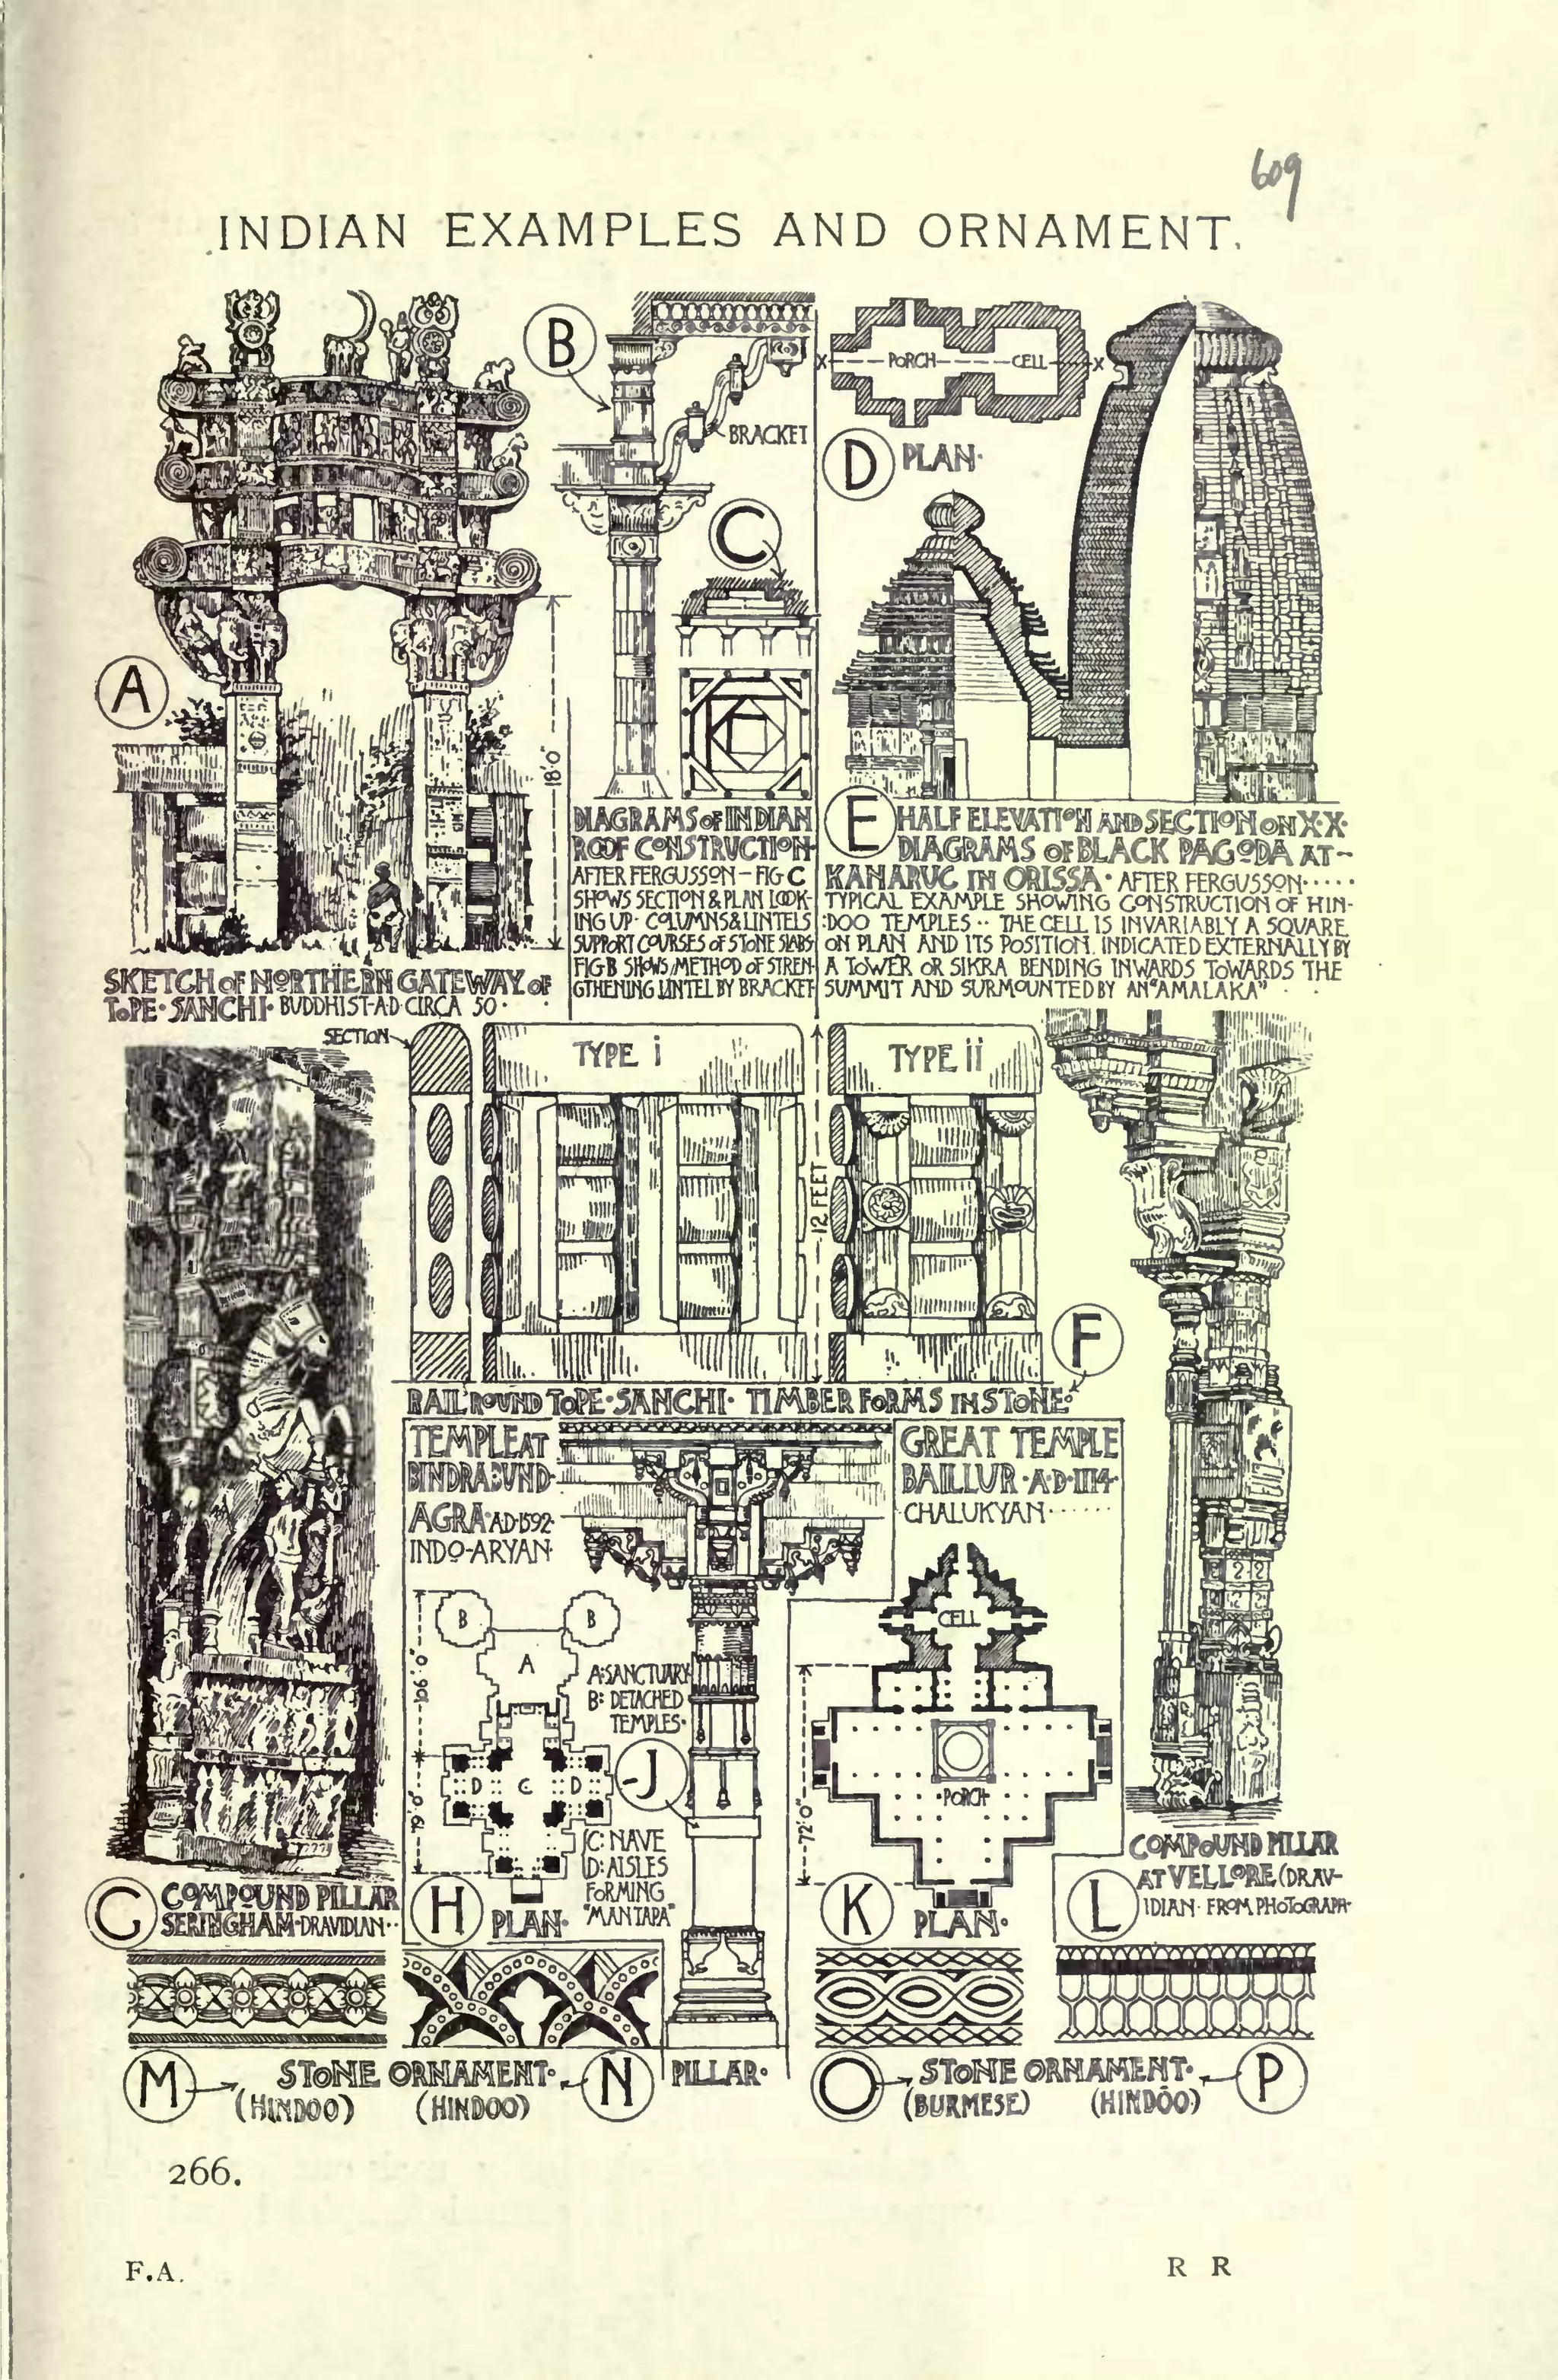 609
INDIAN EXAMPLES AND ORNAMENT.
A
18'.0"
SKETCH OF NORTHERN GATEWAY OF
TOPE · SANCHI · BUDDHIST · A·D· CIRCA 50 ·
B
BRACKET
C
DIAGRAMS OF INDIAN
ROOF CONSTRUCTION
AFTER FERGUSSON – FIG C
SHOWS SECTION & PLAN LOOK-
ING UP · COLUMNS & LINTELS
SUPPORT COURSES OF STONE SLABS
FIG·B SHOWS METHOD OF STREN-
GTHENING LINTEL BY BRACKET
X PORCH CELL X
D PLAN·
E HALF ELEVATION AND SECTION ON X·X·
DIAGRAMS OF BLACK PAGODA AT-
KANARUC IN ORISSA · AFTER FERGUSSON ·····
TYPICAL EXAMPLE SHOWING CONSTRUCTION OF HIN-
:DOO TEMPLES ·· THE CELL IS INVARIABLY A SQUARE
ON PLAN AND ITS POSITION INDICATED EXTERNALLY BY
A TOWER OR SIKRA BENDING INWARDS TOWARDS THE
SUMMIT AND SURMOUNTED BY AN "AMALAKA" ·
SECTION
TYPE i
12 FEET
TYPE ii
F
RAIL ROUND TOPE · SANCHI · TIMBER FORMS IN STONE·
G COMPOUND PILLAR
SERINGHAM · DRAVIDIAN ··
TEMPLE AT
BINDRABUND·
AGRA · A·D·1592·
INDO-ARYAN
B B
A
A: SANCTUARY
B: DETACHED
TEMPLES·
D C D
C: NAVE
D: AISLES
FORMING
"MANTAPA"
H PLAN·
J
PILLAR·
GREAT TEMPLE
BAILLUR · A·D·1114·
CHALUKYAN ······
CELL
PORCH
72'.0"
K PLAN·
COMPOUND PILLAR
L AT VELLORE (DRAV-
IDIAN · FROM PHOTOGRAPH·
M STONE ORNAMENT· N
(HINDOO) (HINDOO)
O STONE ORNAMENT· P
(BURMESE) (HINDOO)
266.
F.A.
R R